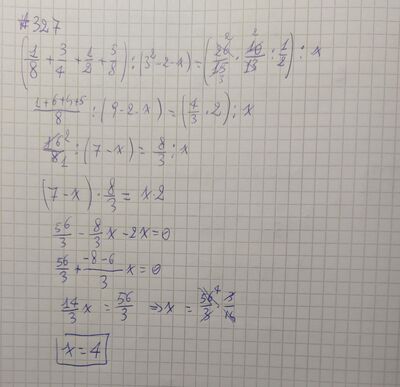 #327
(1/8 + 3/4 + 1/2 + 3/8) : (3² - 2 - x) = (26/15 · 10/13 : 1/2) : x
1+6+4+5/8 : (9 - 2 - x) = (4/3 · 2) : x
16/8 : (7 - x) = 8/3 : x
(7 - x) · 8/3 = x · 2
56/3 - 8/3 x - 2x = 0
56/3 + -8-6/3 x = 0
14/3 x = 56/3 ⇒ x = 56/3 · 3/14
x = 4